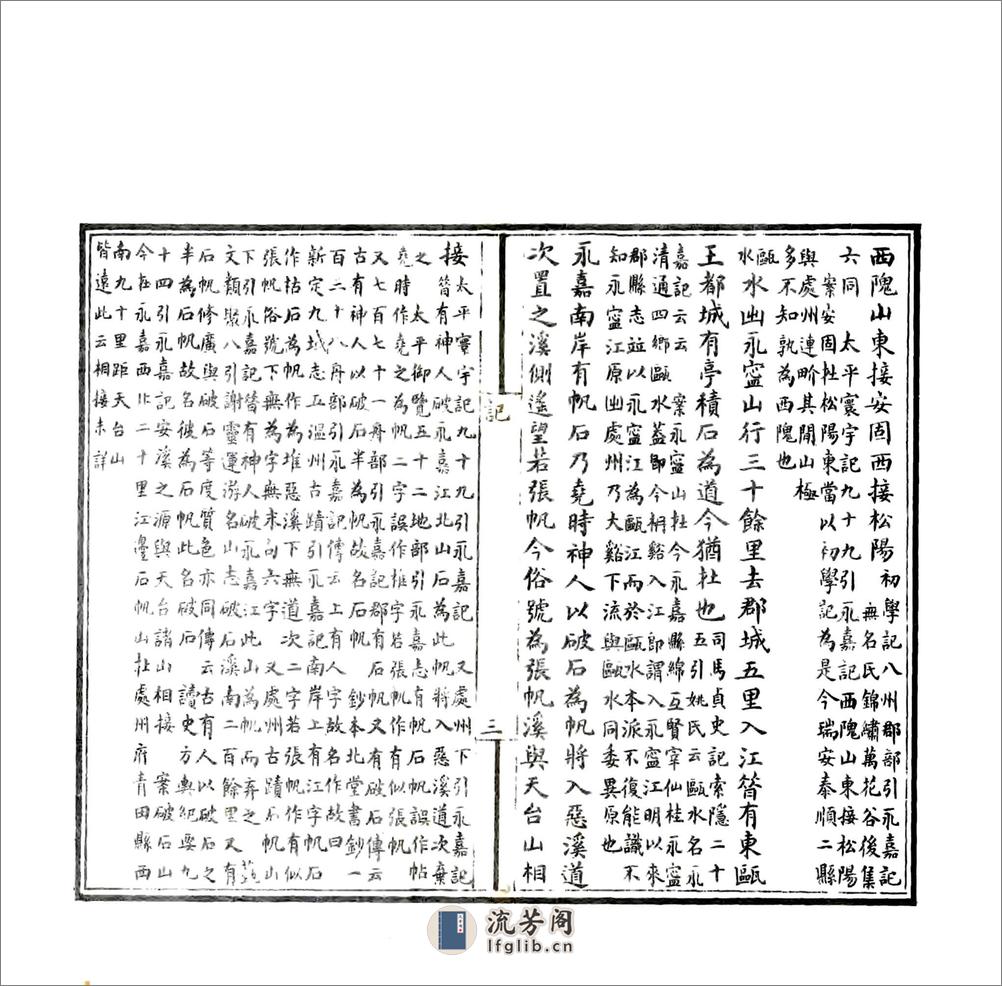 西隗山東接安固西接松陽初學記八州郡部引永嘉記
無名氏錦繡萬花谷後集
六同　太平寰宇記九十九引永嘉記西隗山東接松陽
案安固杜松陽東當以初學記為是今瑞安泰順二縣
與處州連畍其閒山極
多不知孰為西隗也
甌水水出永寧山行三十餘里去郡城五里入江昝有東甌
王都城有亭積石為道今猶杜也司馬貞史記索隱二十
五引姚氏云甌水名永
嘉記云云　案永寧山杜今永嘉縣綿亙賢宰仙桂永寧
清通四鄉甌水蓋即今枏谿入江即謂入永寧江明以來
郡縣志並以永寧江為甌江而於甌水本派不復能識不
知永寧江原出處州乃大谿下流與甌水同委異原也
永嘉南岸有帆石乃堯時神人以破石為帆將入惡溪道
次置之溪側遙望若張帆今俗號為張帆溪與天台山相
記
三
接太平寰宇記九十九引永嘉記　又處州下引永嘉記
昝有神人破永嘉江北山石為此帆將入惡溪道次棄
之　太平御覽五十二地部引永嘉志有帆石帆誤作帖
堯時作堯之為帆二字誤作椎字若張帆作有似張帆
又七百七十一舟部引永嘉記郡有石帆又有破石傳云
古有神人以破石半為帆故名石帆　鈔本北堂書鈔一
百二十八舟部引永嘉記傳云上有人字故名作故曰
新定九域志五溫州古蹟引永嘉記南岸上有江字帆石
作枯石為帆作為堆惡溪下無道次二字若張帆作有似
張帆俗號下無為字無末句六字　又處州古蹟石帆山
下引永嘉記昝有神人破永嘉江此山為帆而弃之　藝
文類聚八引謝靈運游名山志破石溪南二百餘里又有
石帆修廣與破石等度質色亦同傳云古有人以破石之
半為石帆故名彼為石帆此名破石　讀史方輿紀要九
十四引永嘉記安溪之源與天台諸山相接　案破石山
今在永嘉西北二十里江邊石帆山杜處州府青田縣西
南九十里距天台山
皆遠此云相接未詳
流芳阁
lfglib.cn